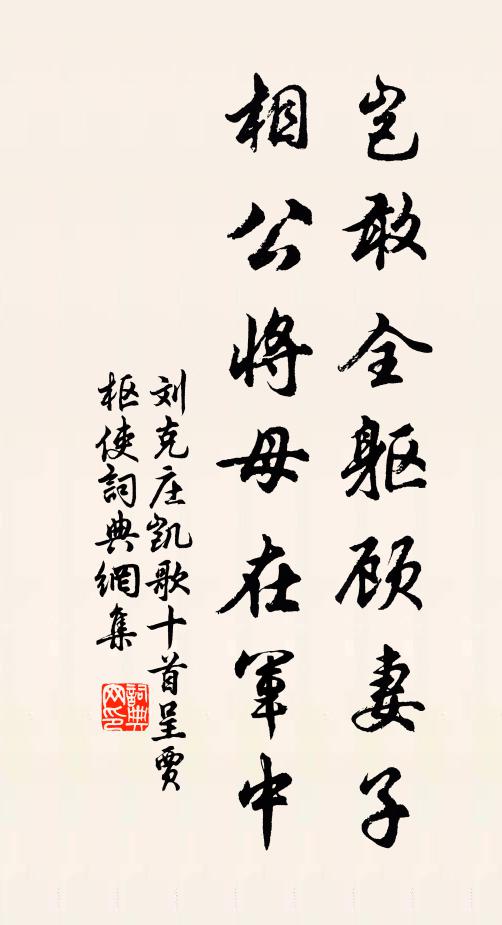 岂敢全躯顾妻子
相公将母在军中
刘克庄凯歌十首呈贾
枢使詞典網集
詞典
网印